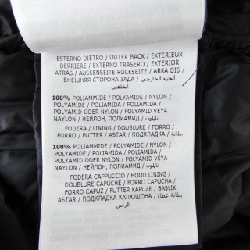 ESTERNO DIETRO / OUTER BACK / EXTERIEUR
DERRIERE / EXTERNO TRASERO / EXTERIOR
ATRAS / AUSSENSEITE RÜCKSEITE / ARKA DIS /
ВНЕШНАЯ СТОРОНА ЗАДИ /
100% POLIAMMIDE / POLYAMIDE / NYLON /
POLYAMIDE / POLIAMIDA /
POLYAMID ODER NYLON / POLYAMID VEYA
NAYLON / НЕЙЛОН, ПОЛИАМИД / نايلون
FODERA / LINING / DOUBLURE / FORRO /
FORRO / FUTTER / ASTAR / ПОДКЛАДКА /
100% POLIAMMIDE / POLYAMIDE / NYLON /
POLYAMIDE / POLIAMIDA /
POLYAMID ODER NYLON / POLYAMID VEYA
NAYLON / НЕЙЛОН, ПОЛИАМИД / نايلون
FODERA CAPPUCCIO / HOOD LINING /
DOUBLURE CAPUCHE / FORRO CAPUCHA /
FORRO CAPUZ / FUTTER KAPUZE /
ASTAR / ПОДКЛАДКА КАПЮШОНА /